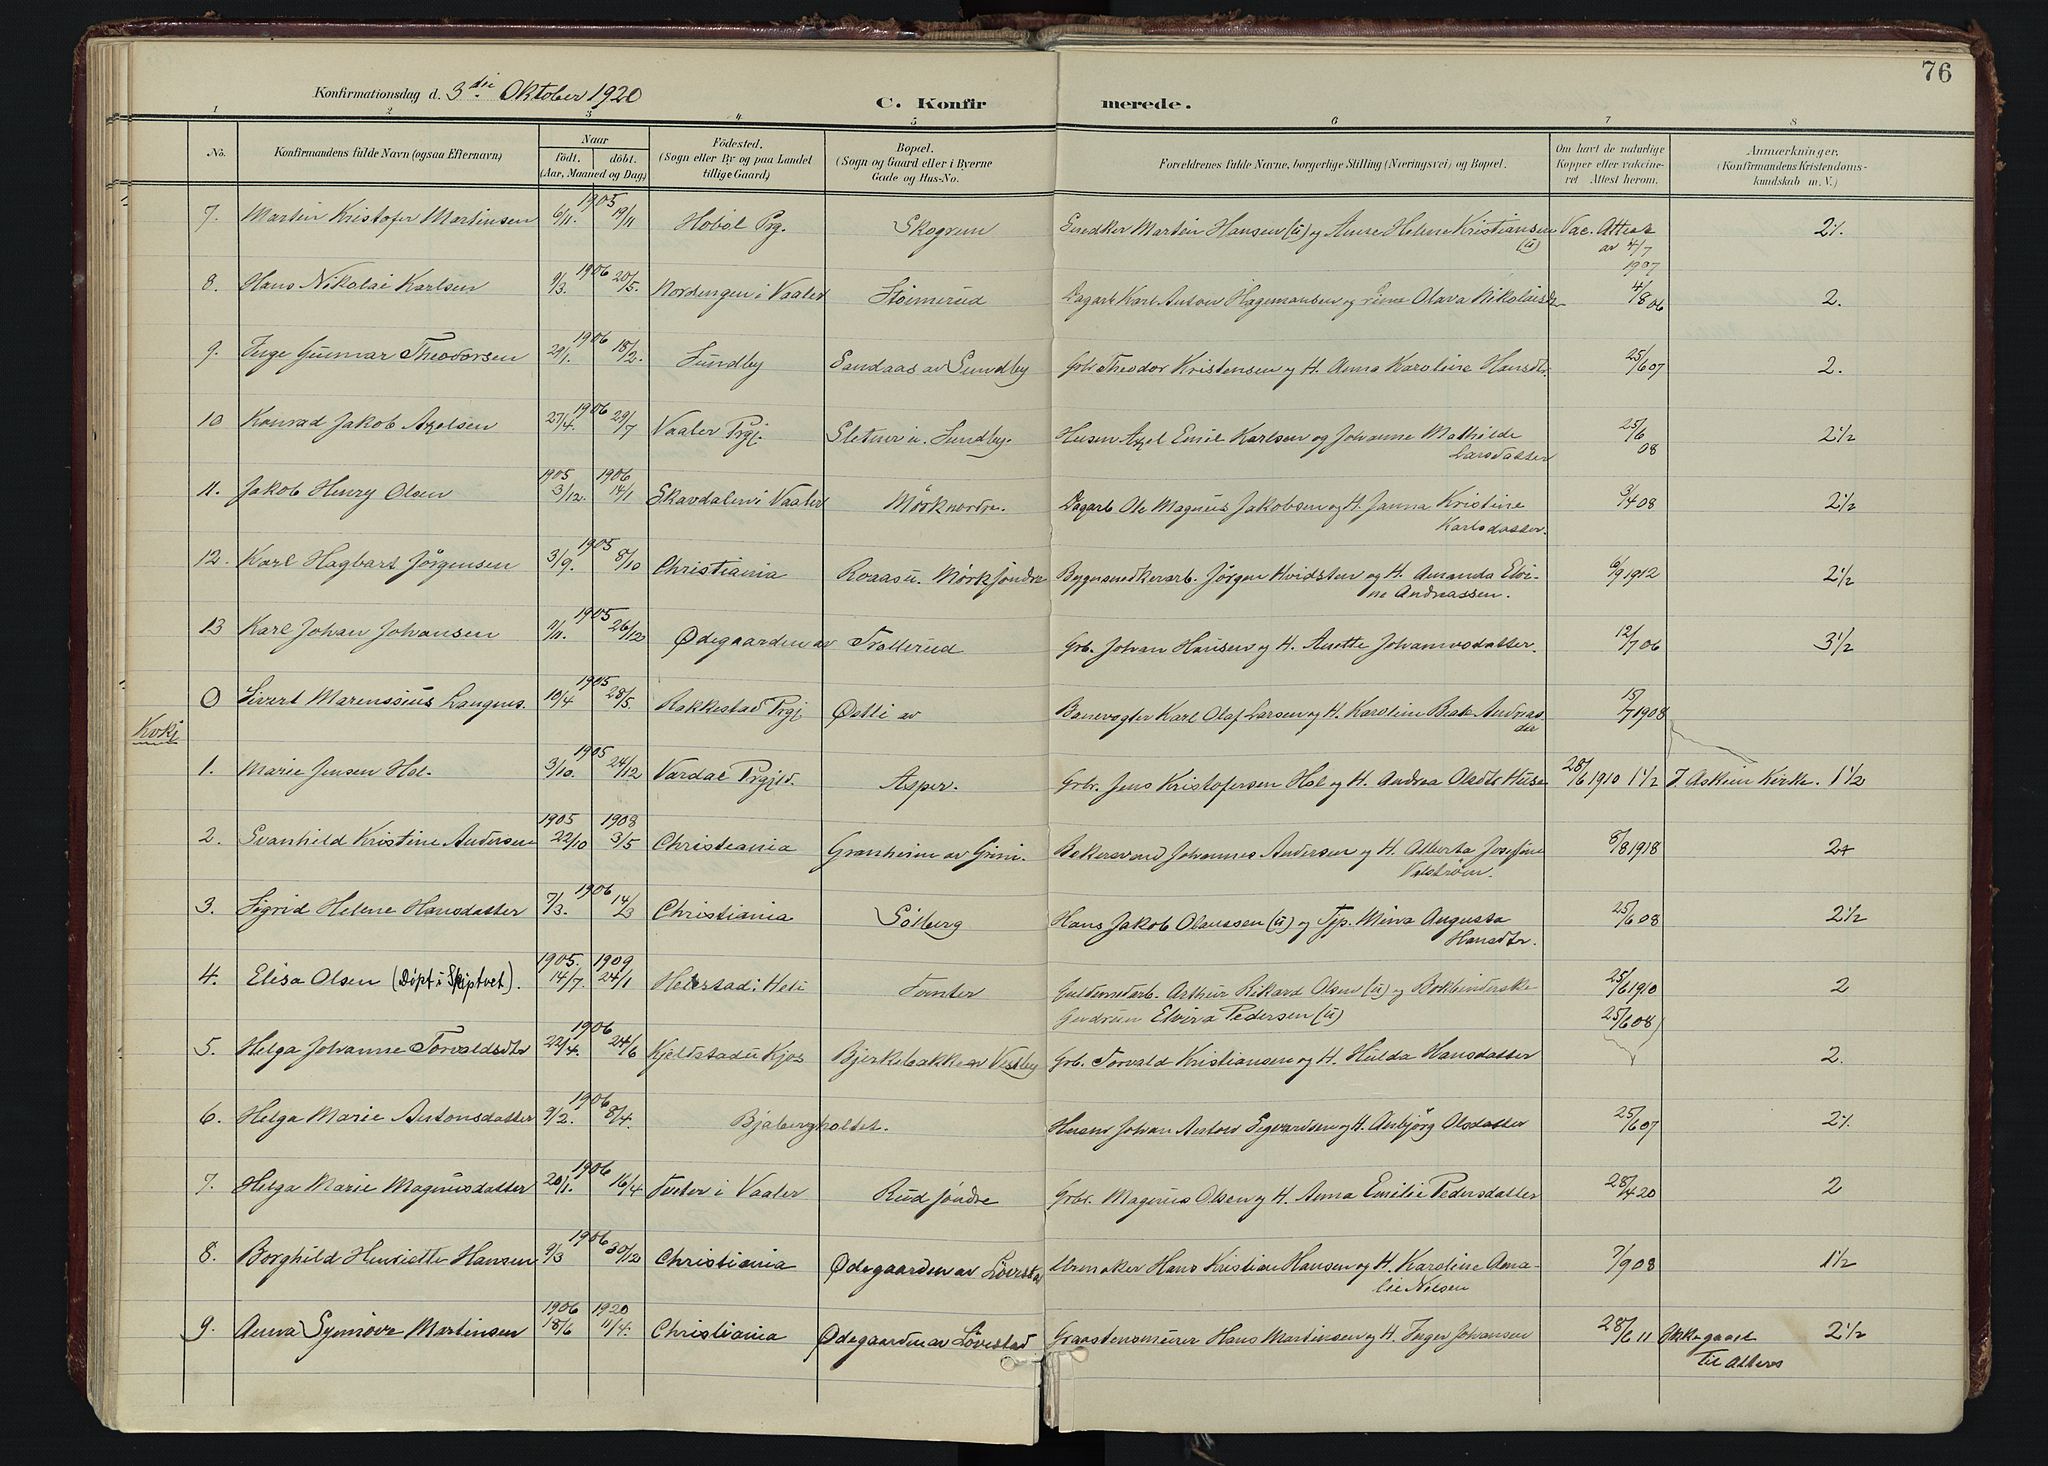 76
Konfirmationsdag d. 3die Oktober 1920
C. Konfirmerede.
1 2 3 4 5 6 7 8
No. Konfirmandens fulde Navn (ogsaa Efternavn) Naar födt. döbt. (Aar, Maaned og Dag) Födested. (Sogn eller By og paa Landet tillige Gaard) Bopæl. (Sogn og Gaard eller i Byerne Gade og Hus-No. Forældrenes fulde Navne, borgerlige Stilling (Næringsvei) og Bopæl. Om havt de naturlige Kopper eller vakcineret Attest herom. Anmærkninger, (Konfirmandens Kristendomskundskab m. V.)
1905
7. Martin Kristofer Martinsen 6/11. 19/11 Hobøl Prg. Skogrun Snedker Martin Hansen (u) og Anne Helene Kristiansen (u) Vac. Attest av 4/7 1907 2%
1906
8. Hans Nikolai Karlsen 9/3. 20/5. Nordengen i Vaaler Stømnerud Dagarb Karl Anton Hagemansen og Olava Nikolaisdr 4/8 06 2.
1906
9. Inge Gunnar Theodorsen 29/1. 18/2. Sundby Sandaas av Sundby Grbr Theodor Kristensen og H. Anna Karoline Hansdtr. 25/6 07 2.
1906
10 Konrad Jakob Axelsen 27/4. 29/7 Vaaler Prgj. Sletner u. Sundby. Husm Axel Emil Karlsen og Johanne Mathilde Larsdatter 25/6 08 2 1/2
1905 1906
11. Jakob Henry Olsen 3/12. 14/1 Skavdalen i Vaaler Mörk nordre. Dagarb Ole Magnus Jakobsen og H. Janna Kristine Karlsdatter. 3/4 08 2 1/2
1905
12. Karl Hagbart Jörgensen 3/9. 8/10 Christiania Roaas u. Mörk söndre Bygsnedkerarb. Jörgen Hvidsten og H. Amanda Elvine Andreassen. 6/9 1912 2 1/2
1905
13 Karl Johan Johansen 11/11. 26/12 Ødegaarden av Trollerud Grb. Johan Hansen og H. Anette Johannesdatter. 12/7 06 3 1/2
1905
0 Sivert Marenssius Laugens. 10/4 28/5 Rakkestad Prgj Østli av Banevogter Karl Olaf Larsen og H. Karoline Beate Andreasdtr 15/7 1908
Kvkj
1905
1. Marie Jensen Hol. 3/10. 24/12 Vardal Prgjld. Asper. Grbr. Jens Kristofersen Hol og H. Andrea Olsdtr Huse 28/6 1910 1 1/2 I Askim Kirke. 1 1/2
1905 1908
2. Svanhild Kristine Andersen 22/10 3/5 Christiania Granheim av Grini. Bakersvend Johannes Andersen og H. Alberta Josefine 8/8 1918 2+
1906
3. Sigrid Helene Hansdatter 7/3. 14/3 Christiania Solberg Hans Jakob Olaussen (u) og Tjp. Mina Augusta Hansdtr. 25/6 08 2 1/2
1905. 1909
4. Elisa Olsen (Døpt i Skiptvet). 14/7. 24/1 Heli Tomter Guldsmedarb. Arthur Rikard Olsen (u) og Bokbinderske Gudrun Elvira Pedersen (u) 25/6 1910 2
1906
5. Helga Johanne Torvaldsdtr 22/4. 24/6 Kjeldstad u Kjos Bjerkebakke av Vestby Grb. Torvald Kristiansen og H. Hulda Hansdatter 25/6 08 2.
1906
6. Helga Marie Antonsdatter 9/2. 8/4. Bjabergholtet. Husm Johan Anton Sigvardsen og H. Anbjörg Olsdatter 25/6 07 2%
1906
7. Helga Marie Magnusdatter 20/1. 16/4 Tveter i Vaaler Rud söndre Grbr. Magnus Olsen og H. Anna Emilie Pedersdatter 28/4 20 2
1906
8. Borghild Henriette Hansen 9/3 30/12 Christiania Ødegaarden av Löverstad Urmaker Hans Kristian Hansen og H. Karoline Amalie Nilsen 7/9 08 1 1/2
1906 1920
9. Anna Synnöve Martinsen 18/6 11/4. Christiania Ødegaarden av Lövestad Graastensmurer Hans Martinsen og H. Inger Johansen 28/6 11 Ikke gaaet til Alters 2 1/2